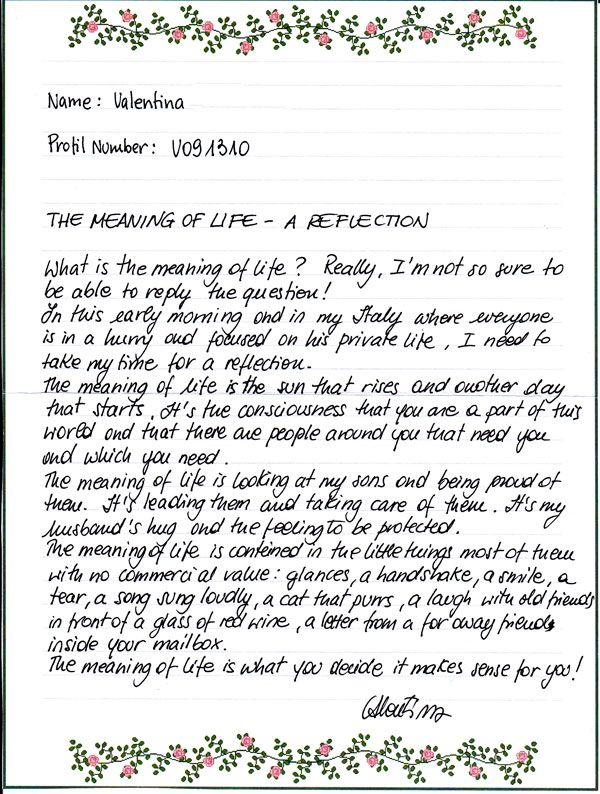 Name: Valentina
Profil Number: V091310
THE MEANING OF LIFE - A REFLECTION
What is the meaning of life? Really, I'm not so sure to
be able to reply the question!
In this early morning and in my Italy where everyone
is in a hurry and focused on his private life, I need to
take my time for a reflection.
The meaning of life is the sun that rises and another day
that starts. It's the consciousness that you are a part of this
world and that there are people around you that need you
and which you need.
The meaning of life is looking at my sons and being proud of
them. It's leading them and taking care of them. It's my
husband's hug and the feeling to be protected.
The meaning of life is conteined in the little things most of them
with no commercial value: glances, a handshake, a smile, a
tear, a song sung loudly, a cat that purrs, a laugh with old friends
in front of a glass of red wine, a letter from a far away friends
inside your mailbox.
The meaning of life is what you decide it makes sense for you!